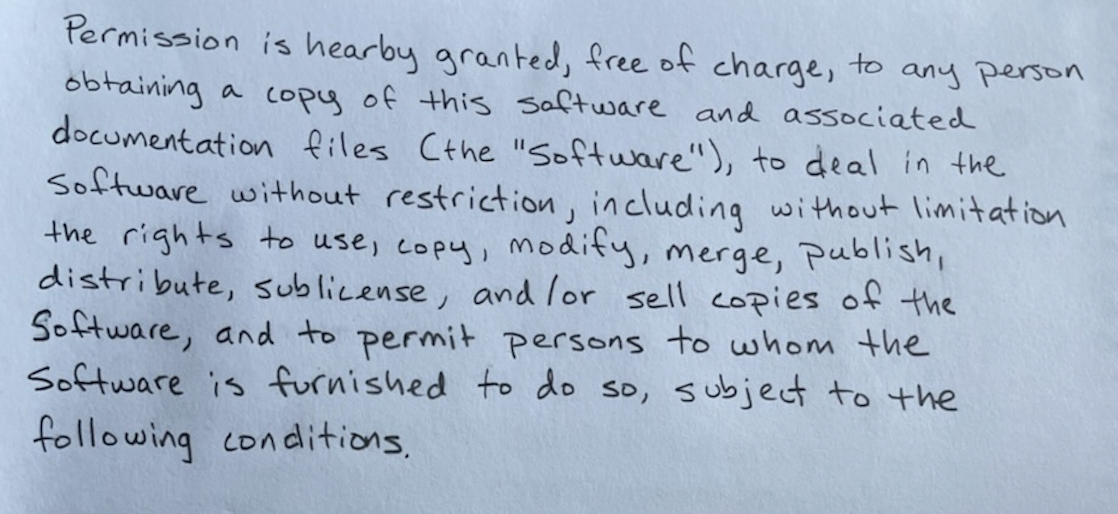 Permission is hearby granted, free of charge, to any person
obtaining a copy of this software and associated
documentation files (the "Software"), to deal in the
Software without restriction, including without limitation
the rights to use, copy, modify, merge, publish,
distribute, sublicense, and/or sell copies of the
Software, and to permit persons to whom the
Software is furnished to do so, subject to the
following conditions.